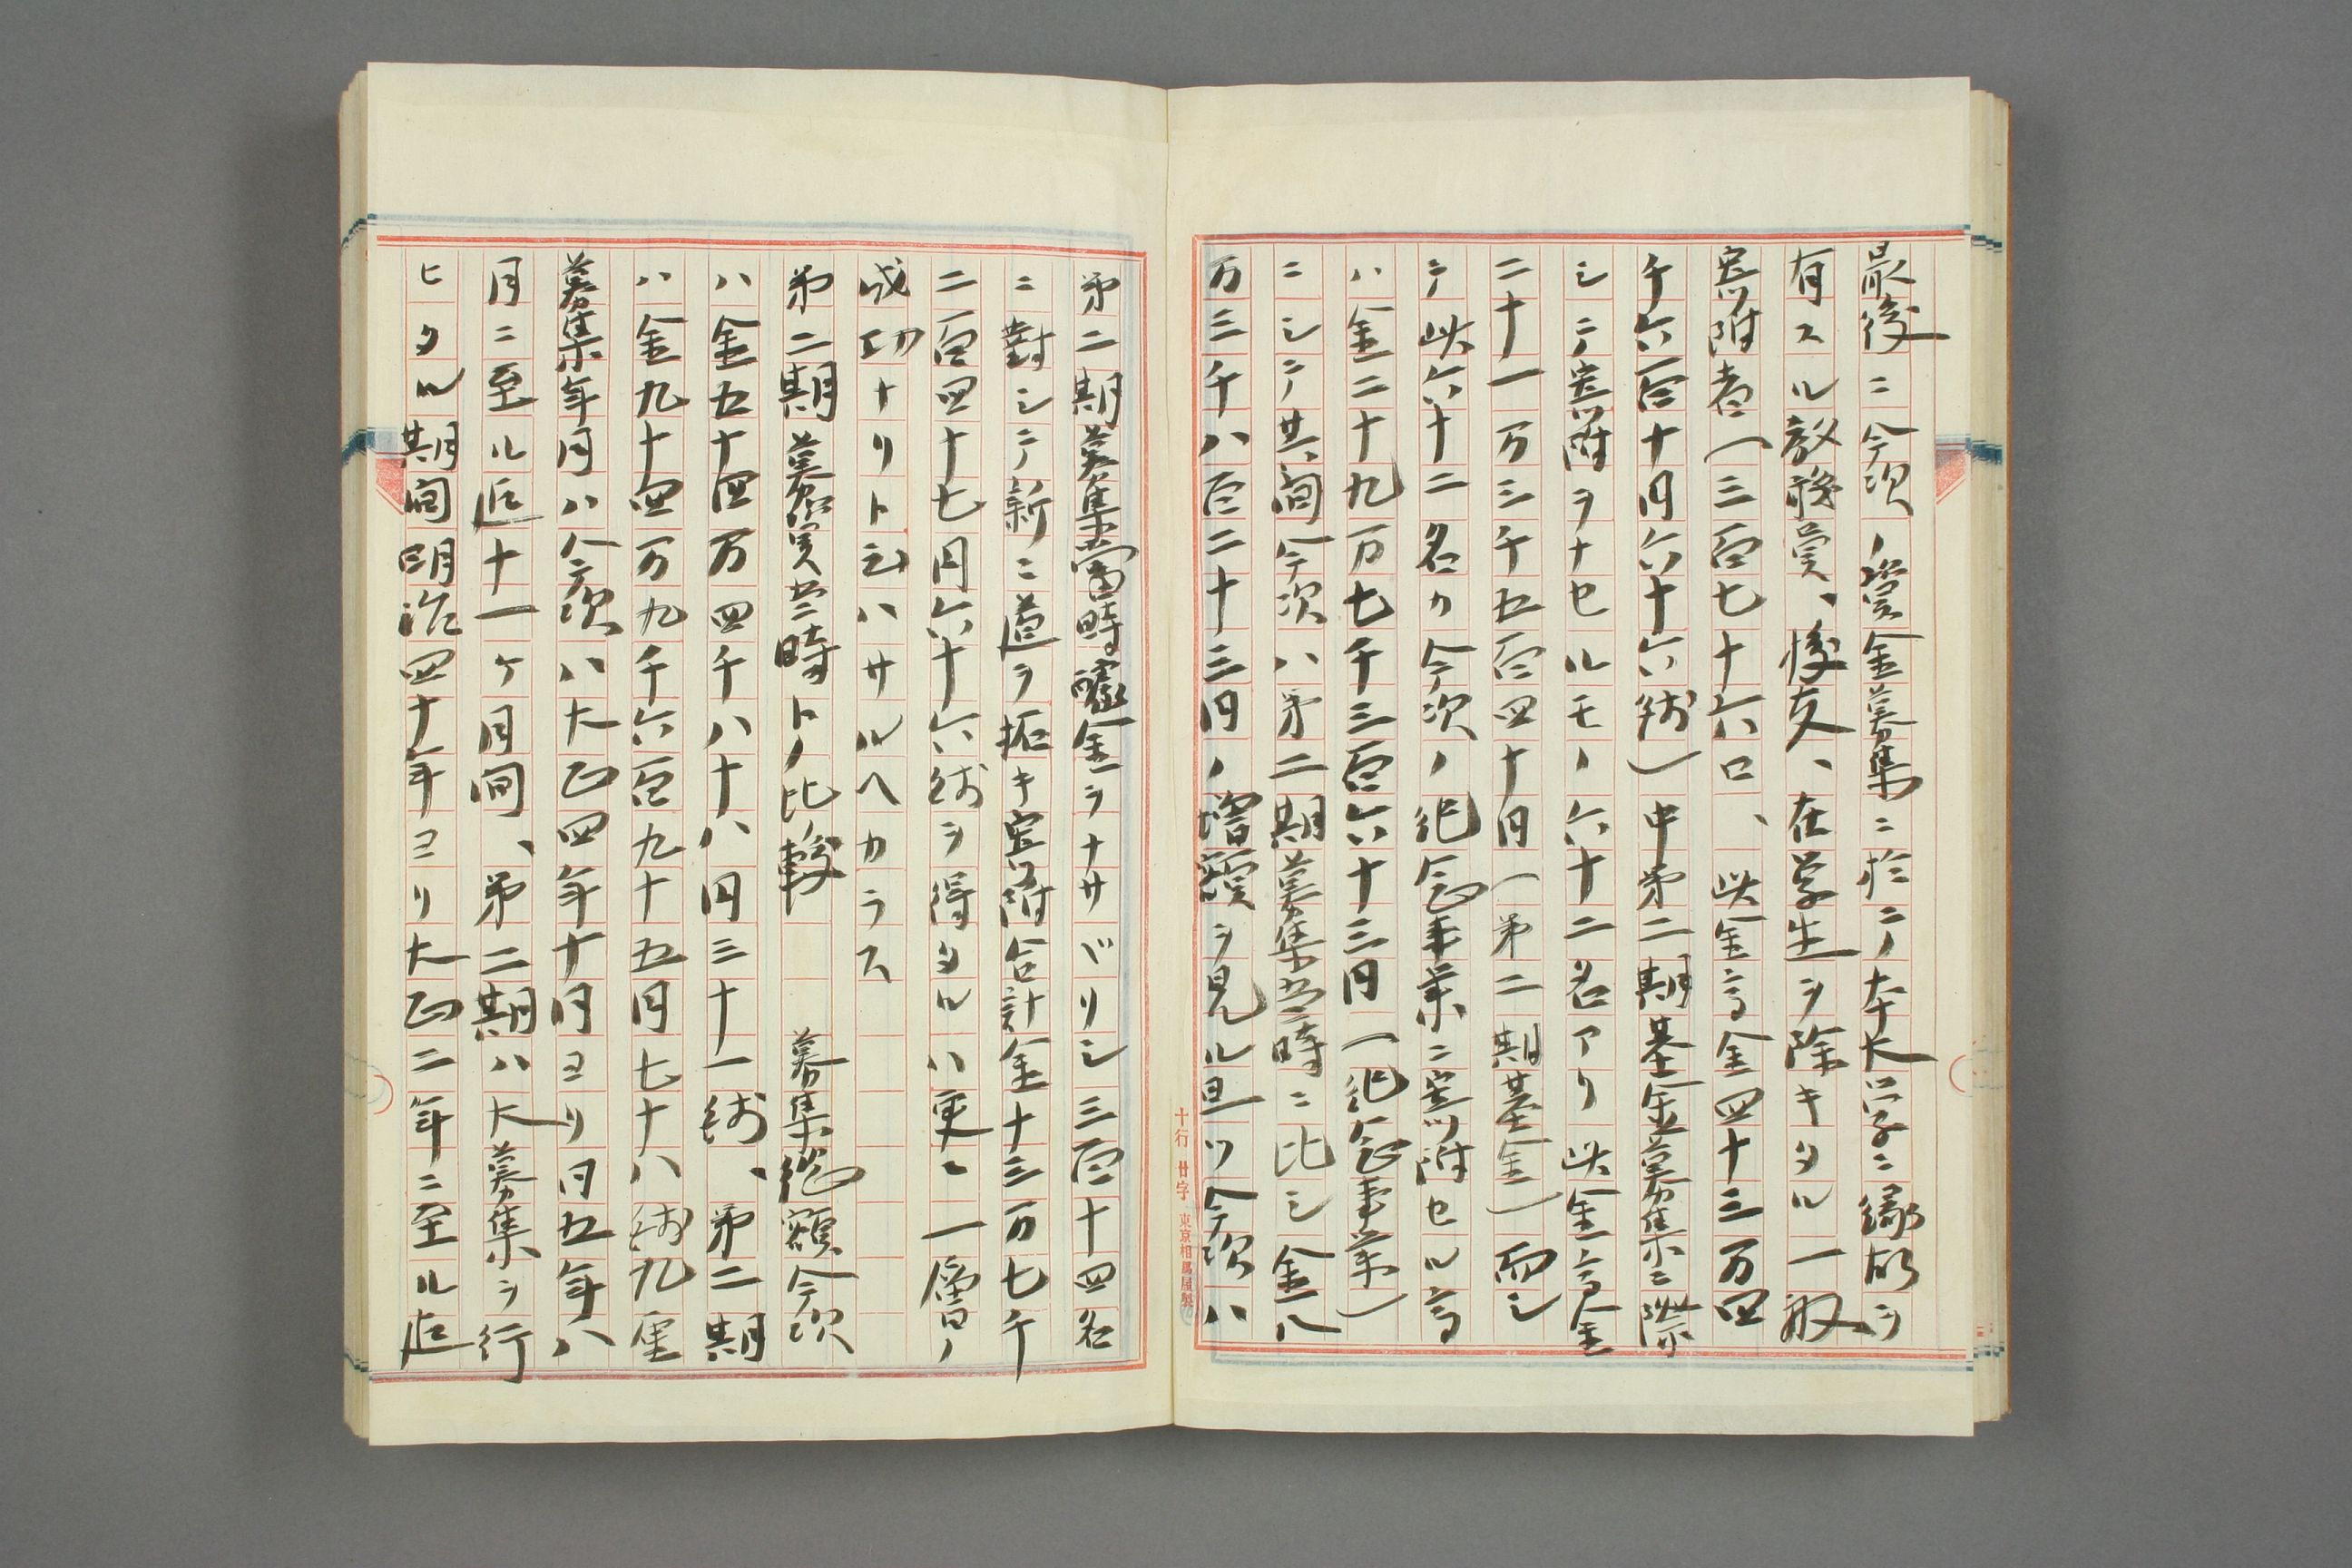 最後ニ今次ノ資金募集ニ於テ本大学ニ縁故ヲ
有スル教職員、校友、在学生ヲ除キタル一般
寄附者(三百七十六口、此金高金四十三万四
千六百十円六十六銭)中第二期基金募集ニ際
シテ寄附ヲナセルモノ六十二名アリ此金高金
二十一万三千五百四十円(第二期基金)而シ
テ此六十二名カ今次ノ紀念事業ニ寄附セル高
ハ金二十九万七千三百六十三円(紀念事業)
ニシテ其間今次ハ第二期募集当時ニ比シ金八
万三千八百二十三円ノ増額ヲ見ル且ツ今次ハ
十行廿字 東京相馬屋製
第二期募集当時醵金ヲナサヾリシ三百十四名
ニ対シテ新ニ道ヲ拓キ寄附合計金十三万七千
二百四十七円六十六銭ヲ得タルハ更ニ一層ノ
成功ナリト云ハサルヘカラス
第二期募集当時トノ比較 募集総額今次
ハ金五十四万四千八十八円三十一銭、第二期
ハ金九十四万九千六百九十五円七十八銭九厘
募集年月ハ今次ハ大正四年十月ヨリ同五年八
月ニ至ル迄十一ケ月間、第二期ハ大募集ヲ行
ヒタル期間明治四十年ヨリ大正二年ニ至ル迄